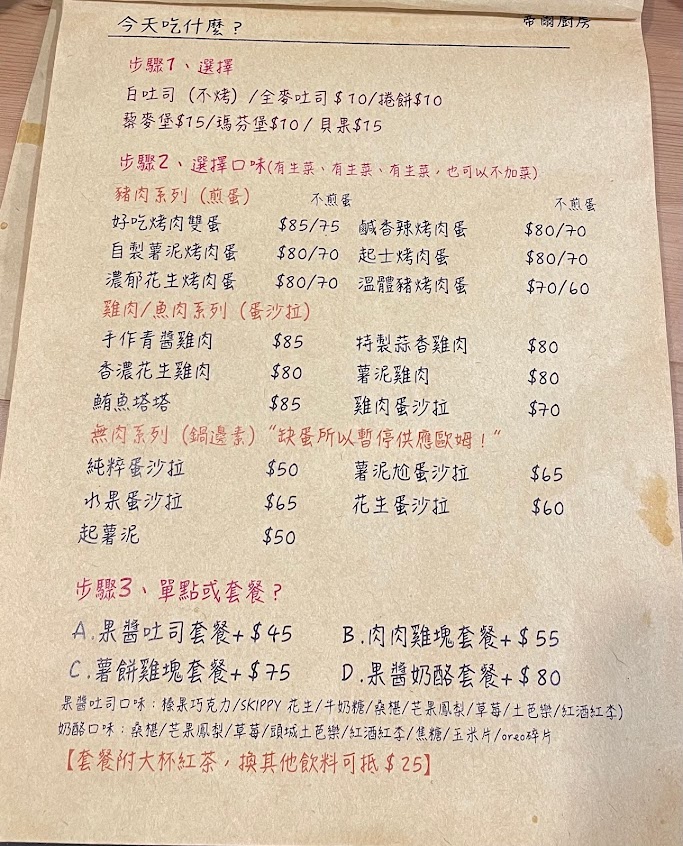 今天吃什麼？ 帝爾廚房
步驟1、選擇
白吐司（不烤）/全麥吐司$10/捲餅$10
藜麥堡$15/瑪芬堡$10/貝果$15
步驟2、選擇口味(有生菜、有生菜、有生菜，也可以不加菜)
豬肉系列（煎蛋） 不煎蛋 不煎蛋
好吃烤肉雙蛋 $85/75 鹹香辣烤肉蛋 $80/70
自製薯泥烤肉蛋 $80/70 起士烤肉蛋 $80/70
濃郁花生烤肉蛋 $80/70 溫體豬烤肉蛋 $70/60
雞肉/魚肉系列（蛋沙拉）
手作青醬雞肉 $85 特製蒜香雞肉 $80
香濃花生雞肉 $80 薯泥雞肉 $80
鮪魚塔塔 $85 雞肉蛋沙拉 $70
無肉系列（鍋邊素）“缺蛋所以暫停供應歐姆！“
純粹蛋沙拉 $50 薯泥尬蛋沙拉 $65
水果蛋沙拉 $65 花生蛋沙拉 $60
起薯泥 $50
步驟3、單點或套餐？
A.果醬吐司套餐+$45 B.肉肉雞塊套餐+$55
C.薯餅雞塊套餐+$75 D.果醬奶酪套餐+$80
果醬吐司口味：榛果巧克力/SKIPPY 花生/牛奶糖/桑椹/芒果鳳梨/草莓/土芭樂/紅酒紅李)
奶酪口味：桑椹/芒果鳳梨/草莓/頭城土芭樂/紅酒紅李/焦糖/玉米片/oreo碎片
【套餐附大杯紅茶，換其他飲料可抵$25】